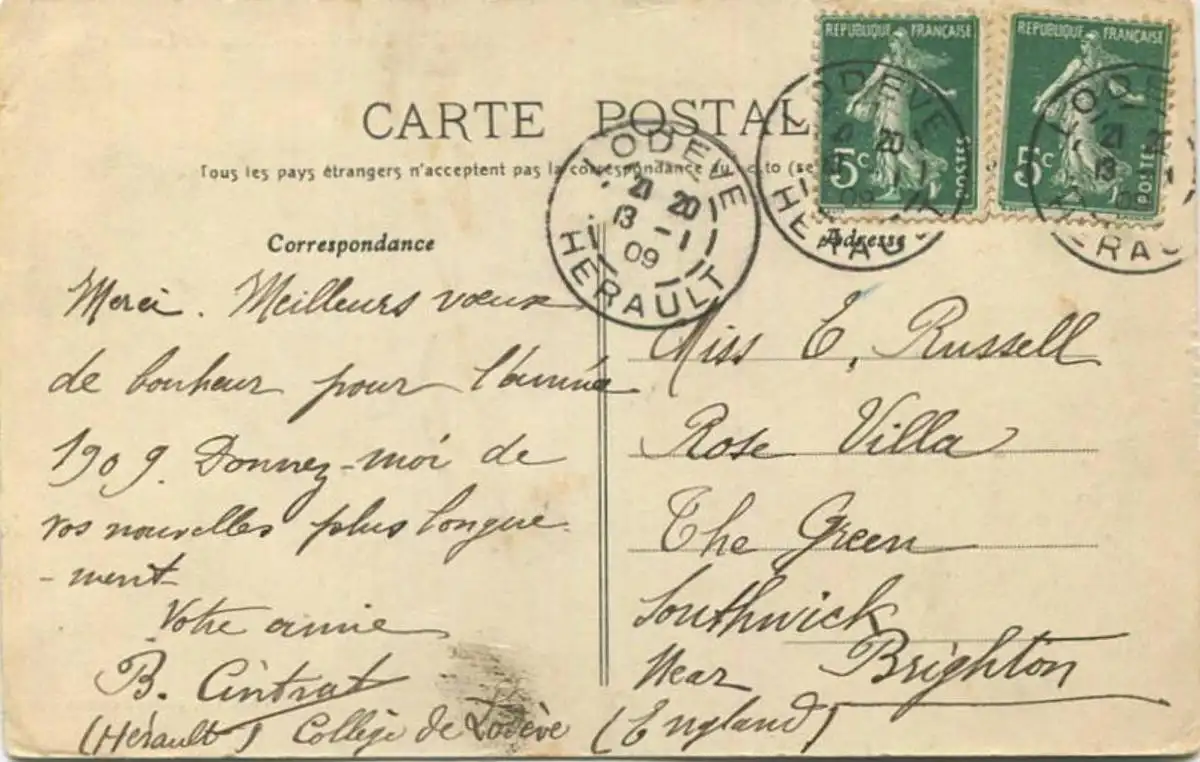 REPUBLIQUE FRANÇAISE
5c
POSTES
REPUBLIQUE FRANÇAISE
5c
POSTES
CARTE POSTAL
Tous les pays étrangers n'acceptent pas la correspondance au
LODEVE
21 20
13 - 1
09
HERAULT
LODEVE
20
1
09
HERAULT
LOD
21 2
13 1
09
HERAU
Correspondance
Adresse
Merci. Meilleurs vœux
de bonheur pour l'année
1909. Donnez-moi de
vos nouvelles plus longue
-ment
Votre amie
B. Cintrat
(Hérault) Collège de Lodève
Miss E. Russell
Rose Villa
The Green
Southwick
Near Brighton
(England)